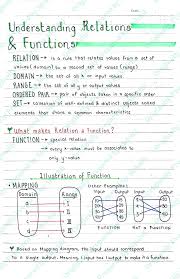 Understanding Relations
& Functions
RELATION → is a rule that relates values from a set of
values (domain) to a second set of values (range)
DOMAIN → the set of all x or input values
RANGE → the set of all y or output values
ORDERED PAIR → pair of objects taken in a specific order
SET → collection of well-defined & distinct objects called
elements that share a common characteristic
What makes Relation a Function?
FUNCTION → special relation
→ every x-value must be associated to
only y-value
Illustration of Function
MAPPING
Other Examples:
Domain Range
Input Output Input Output
FUNCTION Not a FUNCTION
Based on Mapping diagram, the input should correspond
to a single output. Meaning input has 1 output to make it a function.